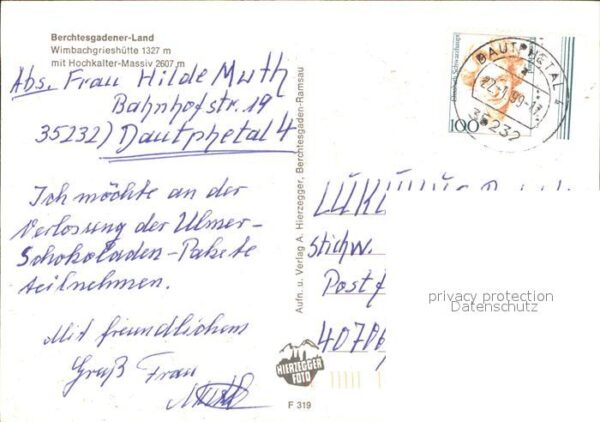 Berchtesgadener-Land
Wimbachgrieshütte 1327 m
mit Hochkalter-Massiv 2607 m
Abs. Frau Hilde Muth
Bahnhofstr. 19
35232) Dautphetal 4
Ich möchte an der
Verlosung der Ulmer-
Schokoladen-Pakete
teilnehmen.
Mit freundlichem
Gruß Frau
Muth
Aufn. u. Verlag A. Hierzegger, Berchtesgaden-Ramsau
HIERZEGGER
FOTO
F 319
Elisabeth Schwarzhaupt
100
DAUTPHETAL 4
22.-1.99-17
35232
Stichw.
Postf
40706
privacy protection
Datenschutz